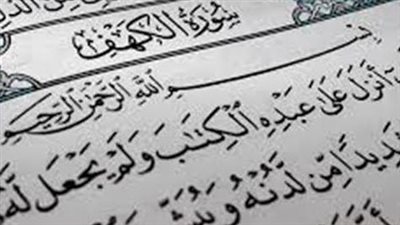 سُورَةُ الكَهْفِ
بِسْمِ اللَّهِ الرَّحْمَٰنِ الرَّحِيمِ
أَنزَلَ عَلَىٰ عَبْدِهِ الْكِتَٰبَ وَلَمْ يَجْعَل لَّهُ
مِّن لَّدُنْهُ وَيُبَشِّرَ